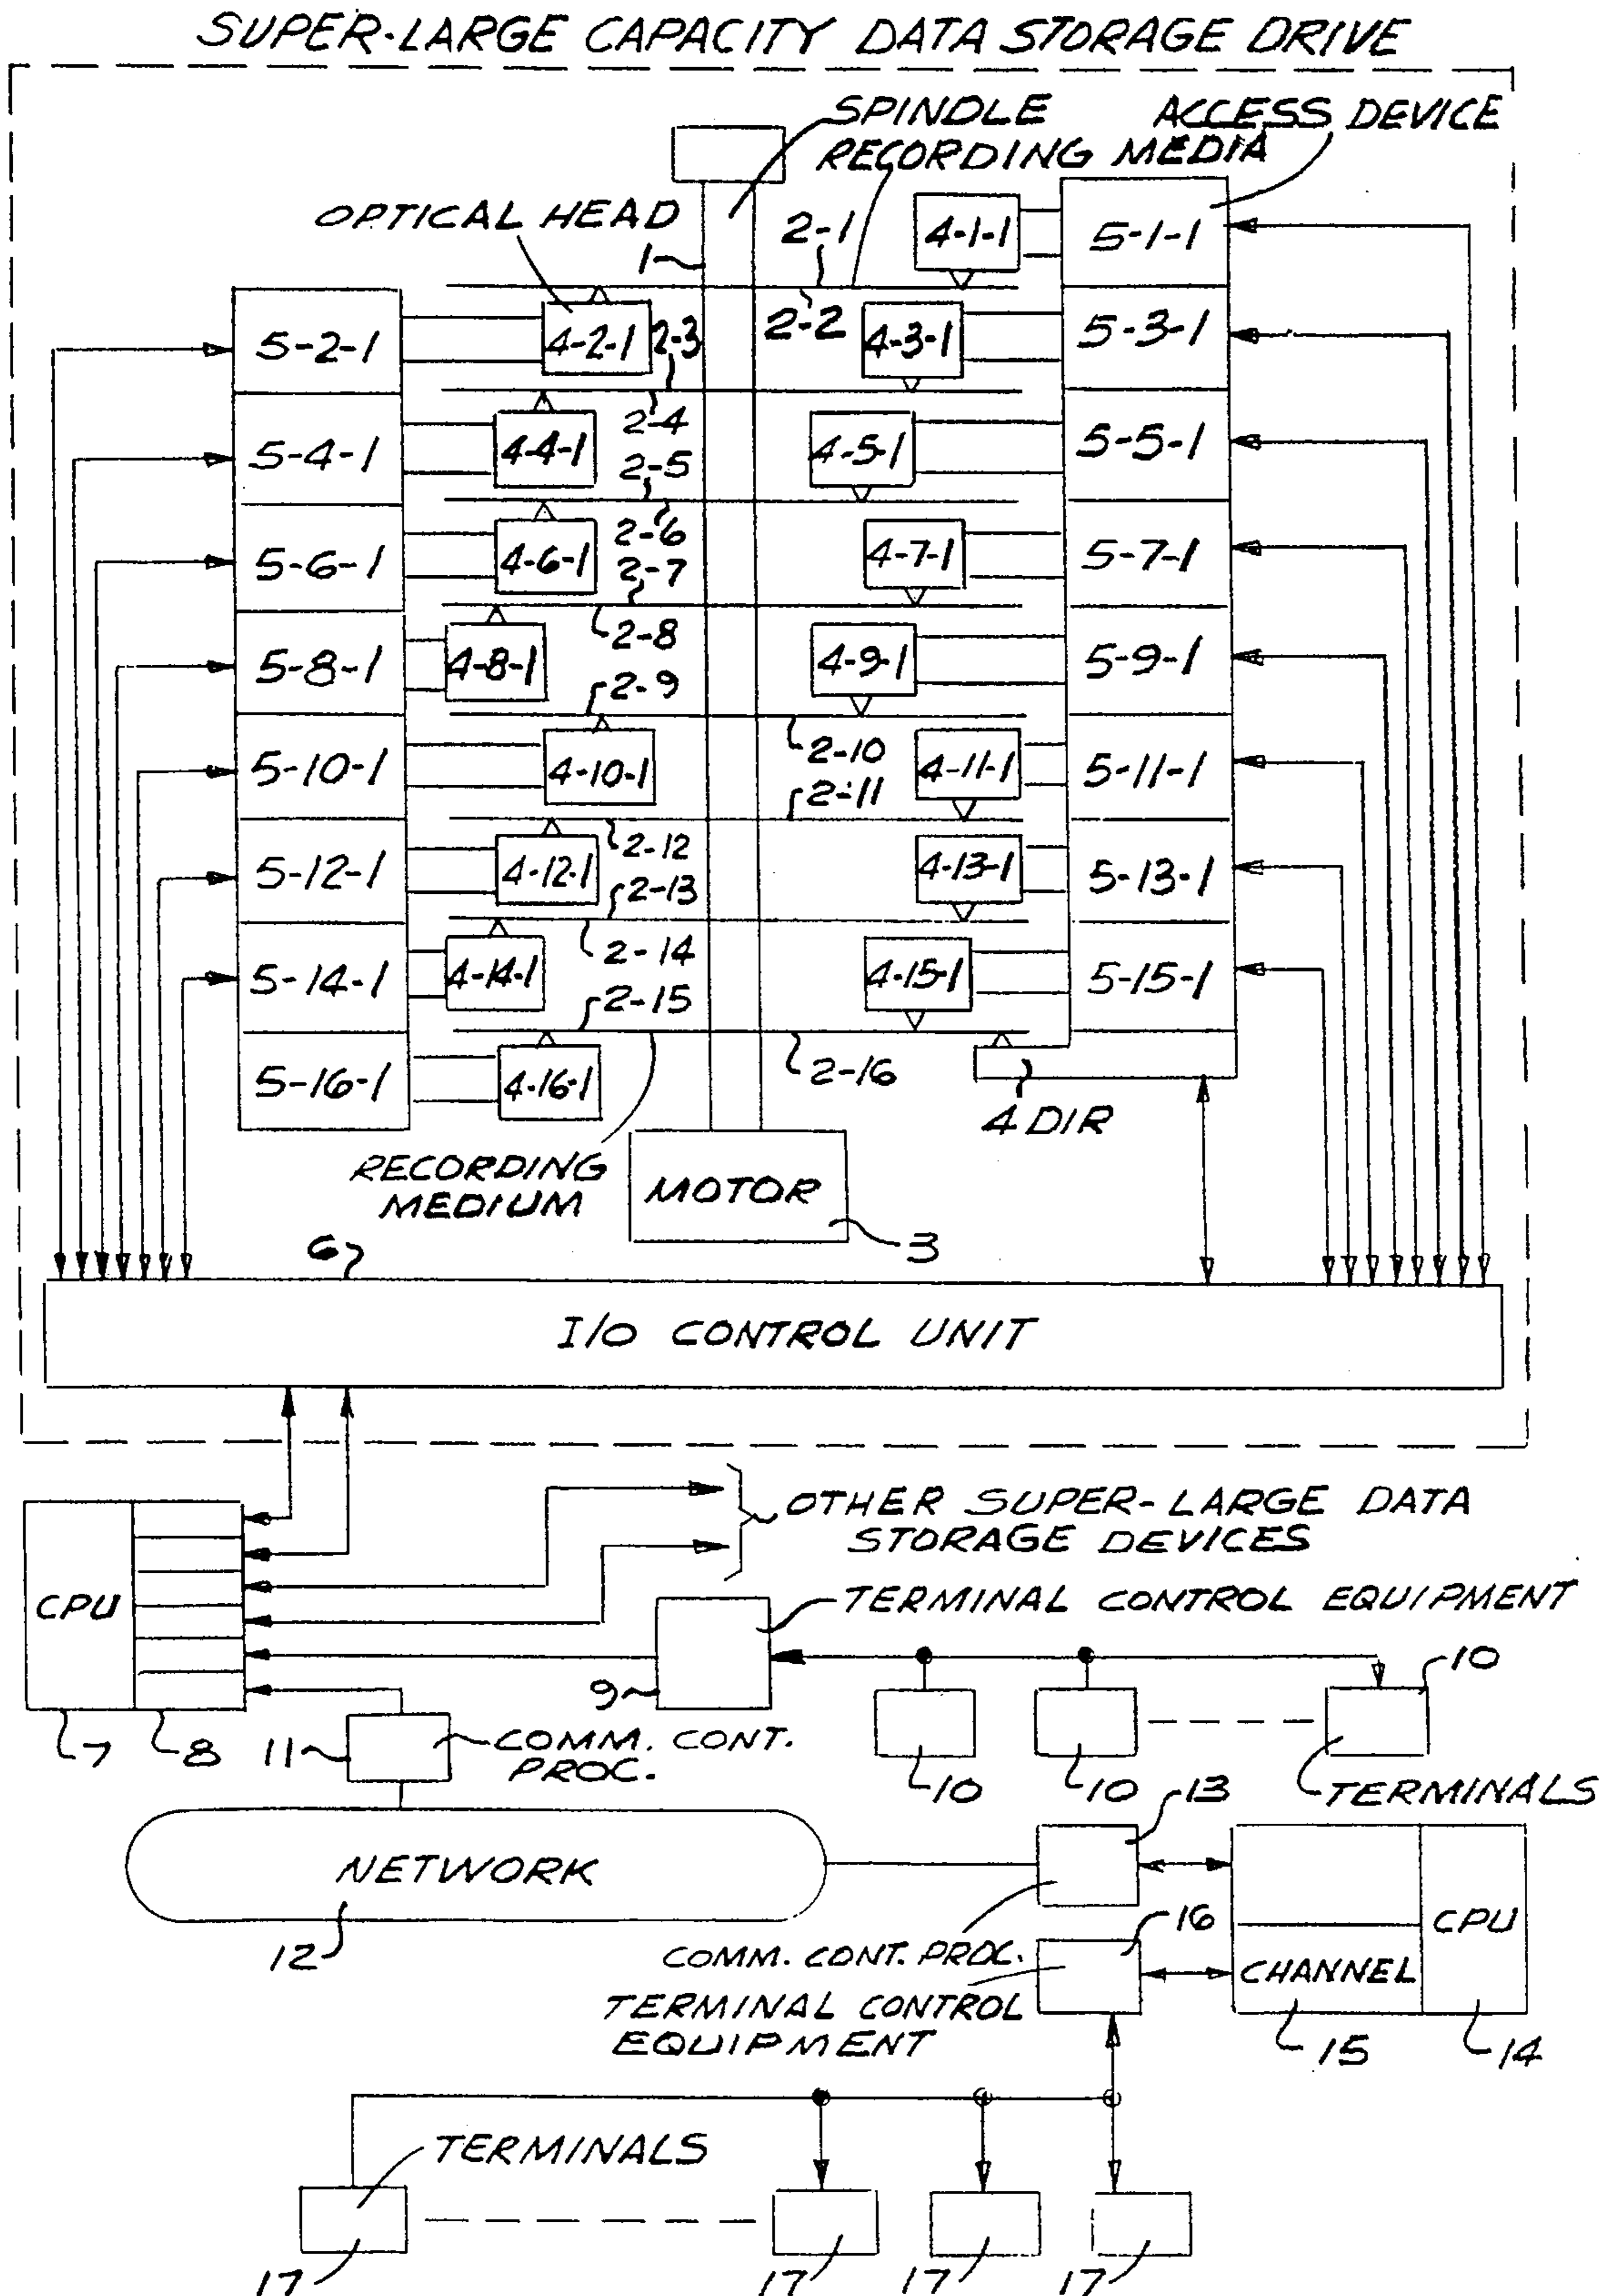 SUPER-LARGE CAPACITY DATA STORAGE DRIVE
SPINDLE
ACCESS DEVICE
RECORDING MEDIA
OPTICAL HEAD
1
2-1
4-1-1
5-1-1
5-2-1
4-2-1
2-3
2-2
4-3-1
5-3-1
5-4-1
4-4-1
2-4
2-5
4-5-1
5-5-1
5-6-1
4-6-1
2-6
2-7
4-7-1
5-7-1
5-8-1
4-8-1
2-8
2-9
4-9-1
5-9-1
5-10-1
4-10-1
2-10
2-11
4-11-1
5-11-1
5-12-1
4-12-1
2-12
2-13
4-13-1
5-13-1
5-14-1
4-14-1
2-14
2-15
4-15-1
5-15-1
5-16-1
4-16-1
2-16
4 DIR
RECORDING
MEDIUM
MOTOR
3
6
I/O CONTROL UNIT
OTHER SUPER-LARGE DATA
STORAGE DEVICES
CPU
TERMINAL CONTROL EQUIPMENT
9
10
7
8
11
COMM. CONT.
PROC.
10
10
TERMINALS
13
NETWORK
12
16
CPU
COMM. CONT. PROC.
CHANNEL
TERMINAL CONTROL
EQUIPMENT
15
14
TERMINALS
17
17
17
17